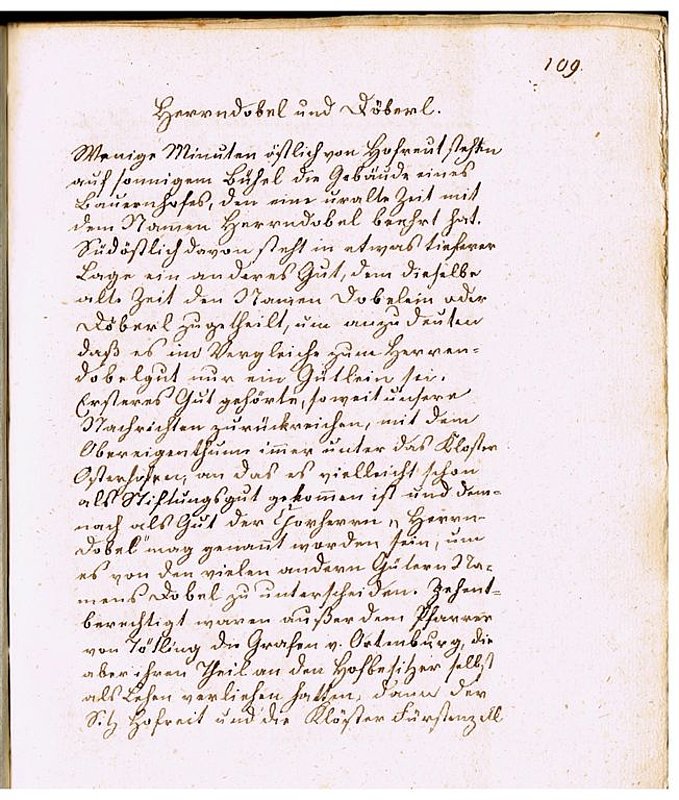 109.
Herrndobel und Döberl.
Wenige Minuten östlich von Hofreut stehen
auf sonnigem Bühel die Gebäude eines
Bauernhofes, den eine uralte Zeit mit
dem Namen Herrndobel beehrt hat.
Südöstlich davon steht in etwas tieferer
Lage ein anderes Gut, dem dieselbe
alte Zeit den Namen Dobelein oder
Döberl zugetheilt, um anzudeuten
daß es im Vergleiche zum Herren-
dobelgut nur ein Gütlein sei.
Ersteres Gut gehörte, soweit unsere
Nachrichten zurückreichen, mit dem
Obereigenthum immer unter das Kloster
Osterhofen, an das es vielleicht schon
als Stiftungsgut gekommen ist und dem-
nach als Gut der Chorherrn „Herrn-
dobel" mag genannt worden sein, um
es von den vielen andern Gütern Na-
mens Dobel zu unterscheiden. Zehent-
berechtigt waren außer dem Pfarrer
von Tößling die Grafen v. Ortenburg, die
aber ihren Theil an den Hofbesitzer selbst
als Lehen verliehen hatten, dann der
Sitz Hofreit und die Klöster Fürstenzell